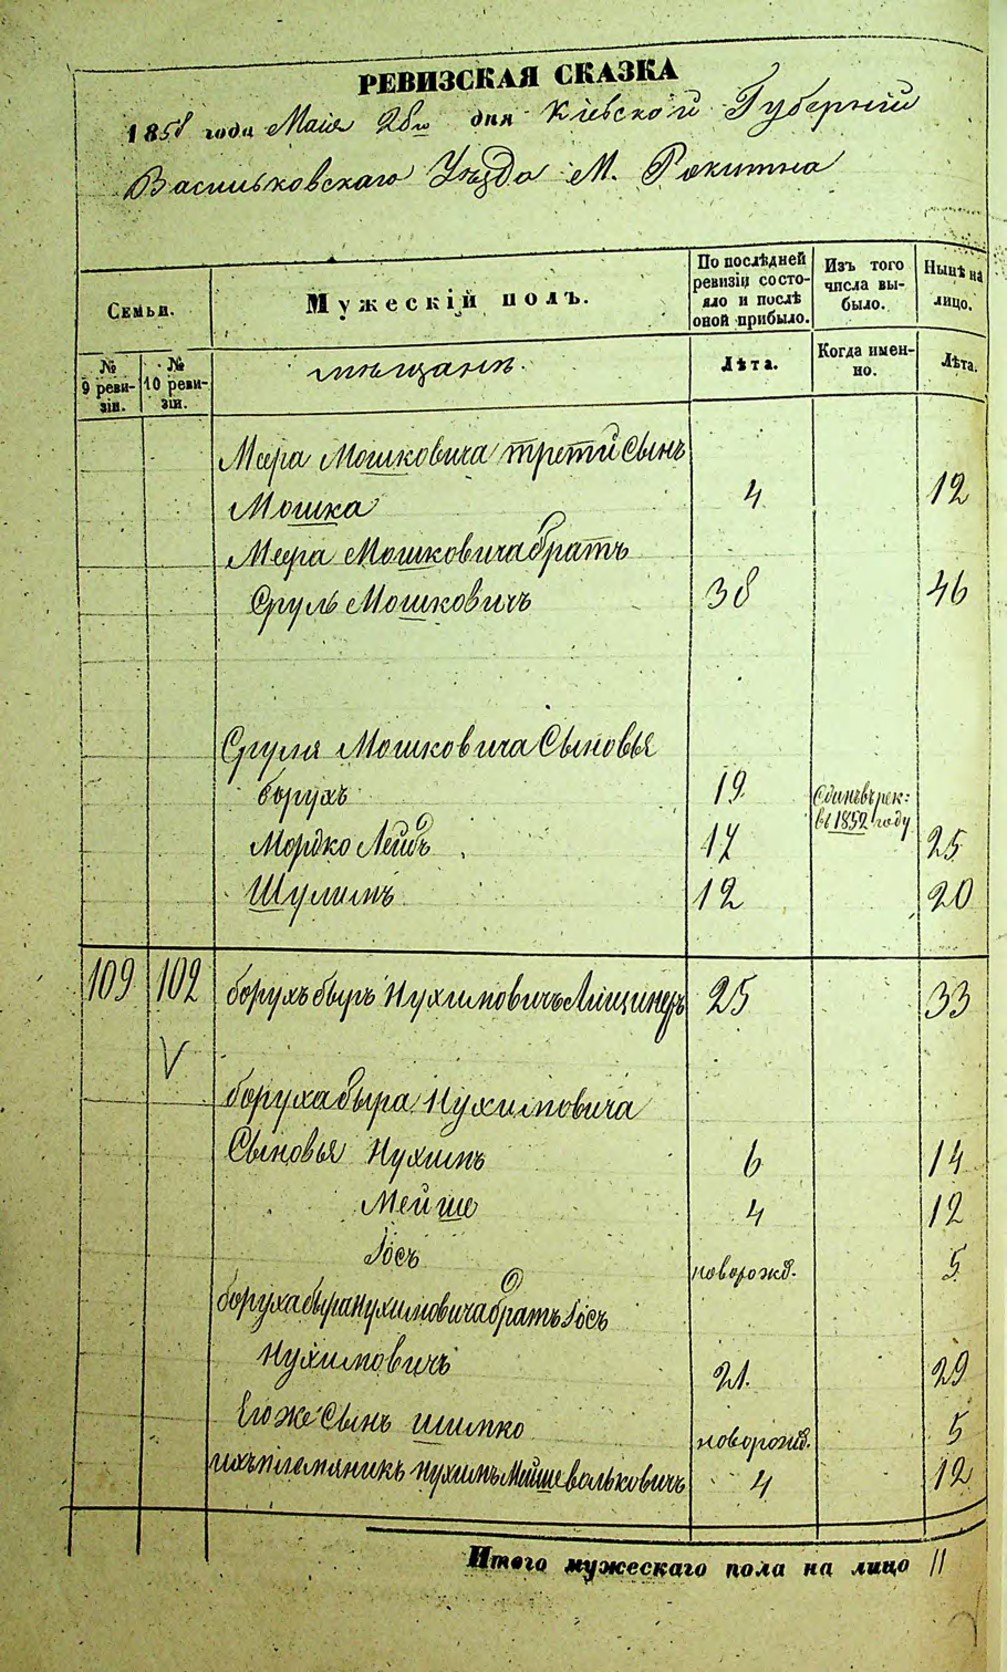 РЕВИЗСКАЯ СКАЗКА
1858 года Маія 28го дня Кіевской Губерніи
Васильковскаго Уѣзда М. Рокитна
Семьи.
Мужескій полъ.
По послѣдней ревизіи состояло и послѣ оной прибыло.
Изъ того числа выбыло.
Нынѣ на лицо.
№ 9 ревизіи.
№ 10 ревизіи.
мѣщане.
Лѣта.
Когда именно.
Лѣта.
Меера Мошковича третій Сынъ
Мошка 4 12
Меера Мошковича братъ
Сруль Мошковичъ 38 46
Сруля Мошковича Сыновья
Борухъ 19 въ рек: въ 1852 году
Мордко Лейб 17 25
Шулимъ 12 20
109 102 Борухъ Быръ Нухимовичъ 25 33
V
Боруха Быра Нухимовича
Сыновья Нухимъ 6 14
Мейше 4 12
Іосъ новорожд. 5
Боруха Быра Нухимовича братъ Іосъ
Нухимовичъ 21. 29
Его же Сынъ Шимко новорожд. 5
ихъ племяникъ Нухимъ Мейше Вольковичъ 4 12
Итого мужескаго пола на лицо 11